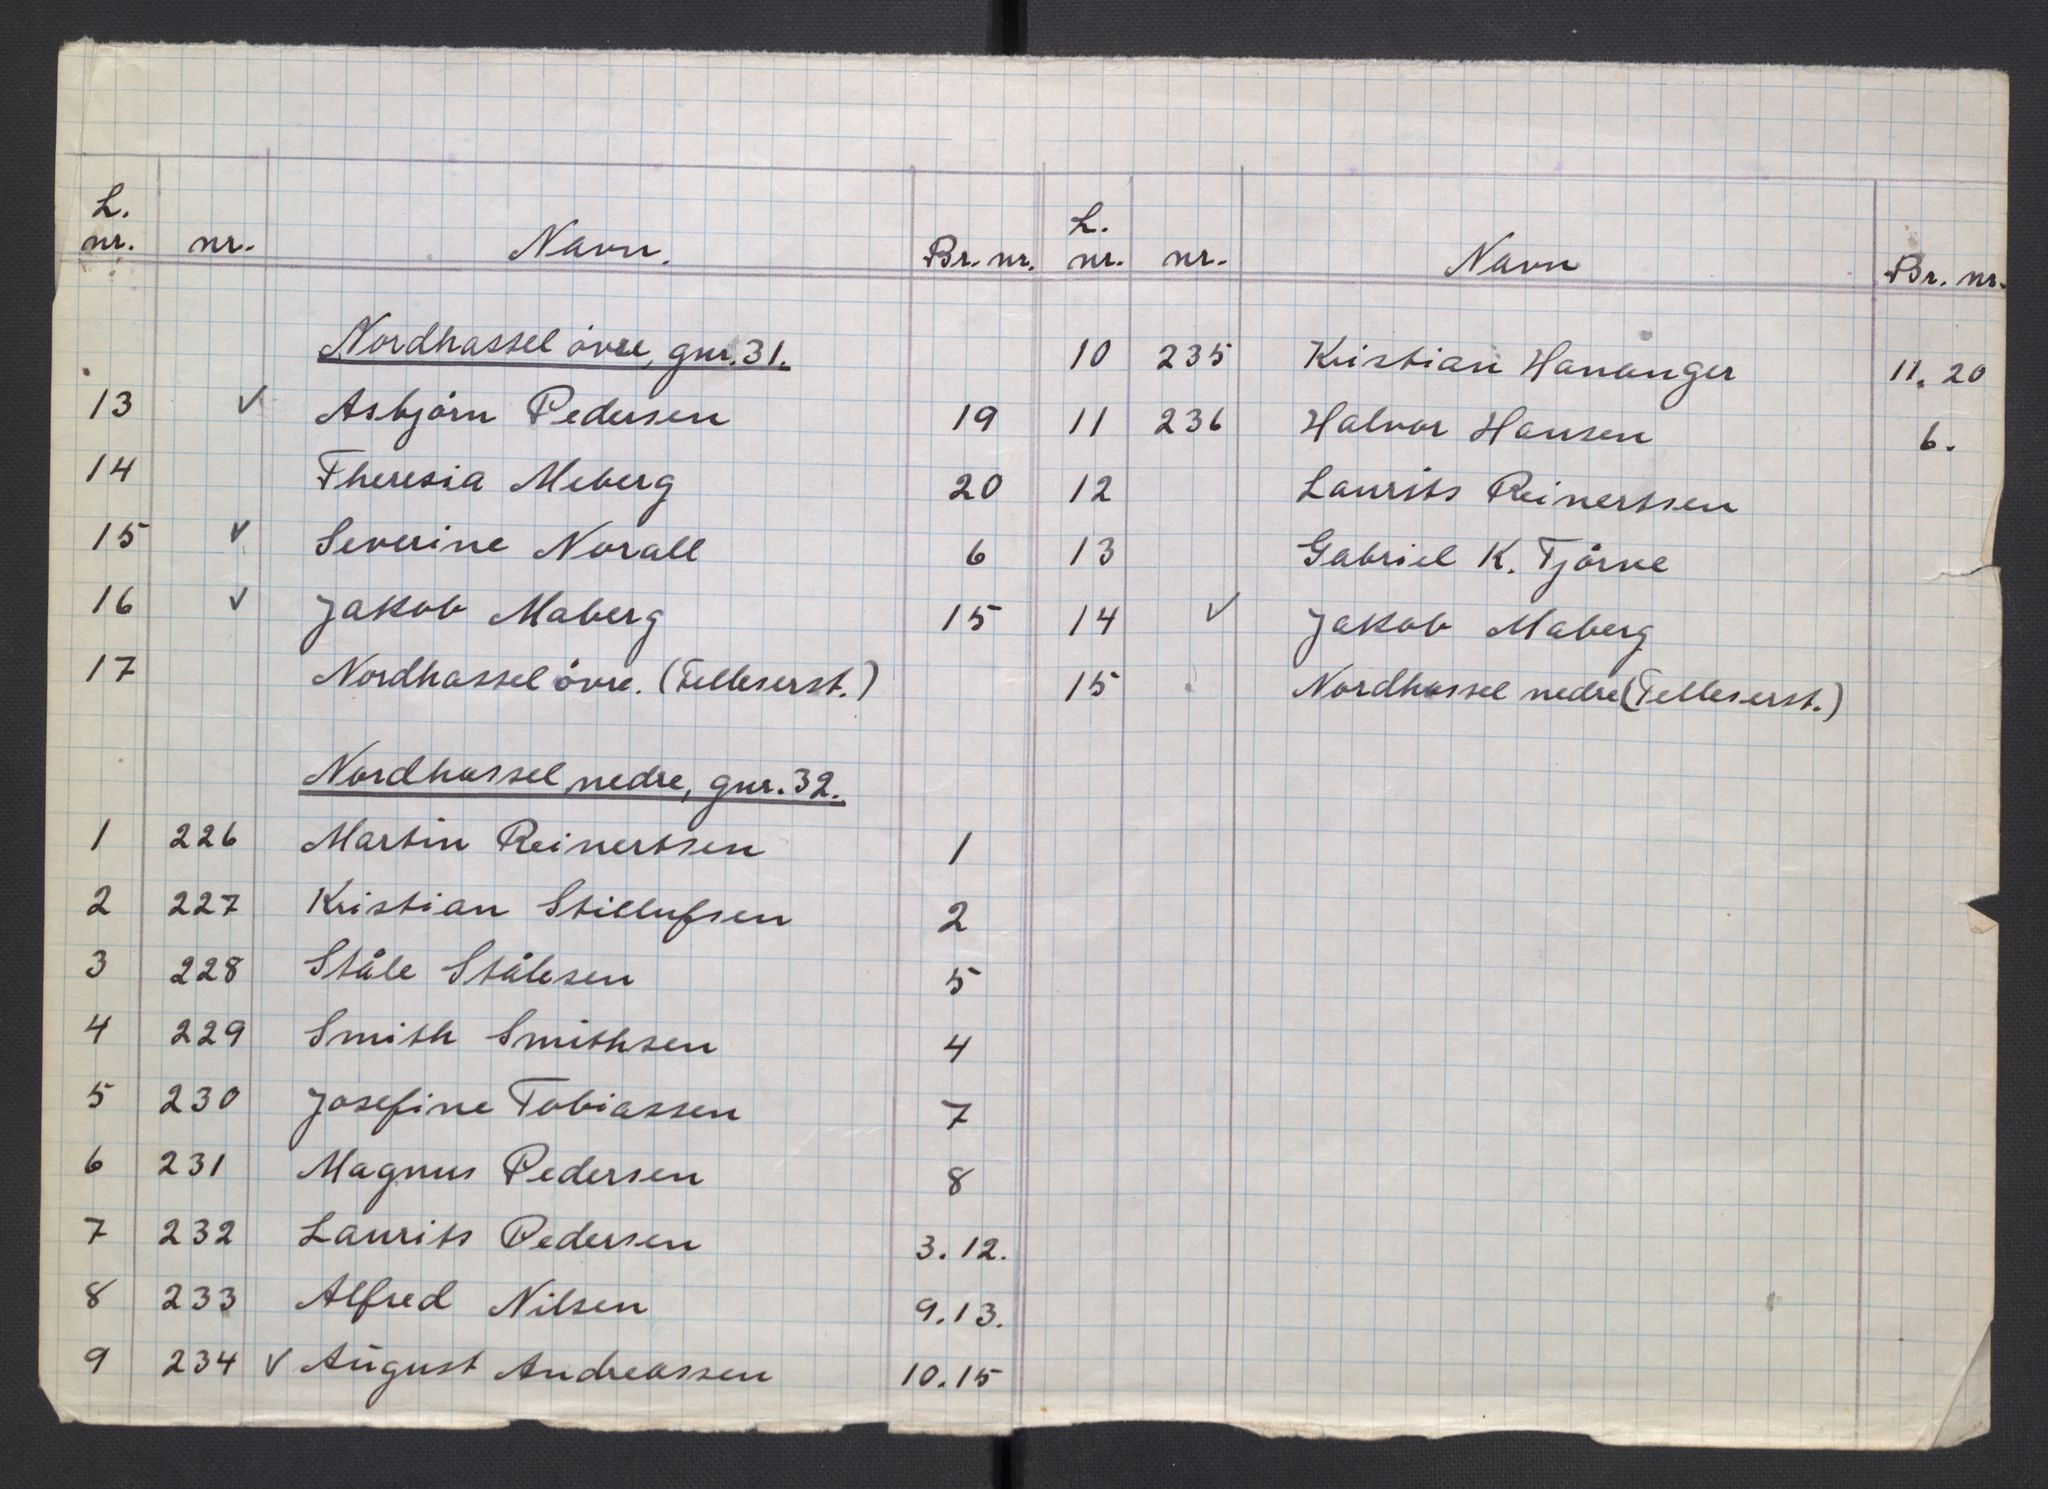 L. nr. nr. Navn. Br. nr.
Nordhassel övre, gnr. 31.
13 ✓ Asbjörn Pedersen 19
14 Theresia Meberg 20
15 ✓ Severine Norall 6
16 ✓ Jakob Maberg 15
17 Nordhassel övre. (Felleserst.)
Nordhassel nedre, gnr. 32.
1 226 Martin Reinertsen 1
2 227 Kristian Stillufsen 2
3 228 Ståle Stålesen 5
4 229 Smith Smithsen 4
5 230 Josefine Tobiassen 7
6 231 Magnus Pedersen 8
7 232 Laurits Pedersen 3.12.
8 233 Alfred Nilsen 9.13.
9 234 ✓ August Andreassen 10.15
L. nr. nr. Navn Br. nr.
10 235 Kristian Hananger 11. 20
11 236 Halvor Hansen 6.
12 Laurits Reinertsen
13 Gabriel K. Tjörve
14 ✓ Jakob Maberg
15 Nordhassel nedre (Felleserst.)